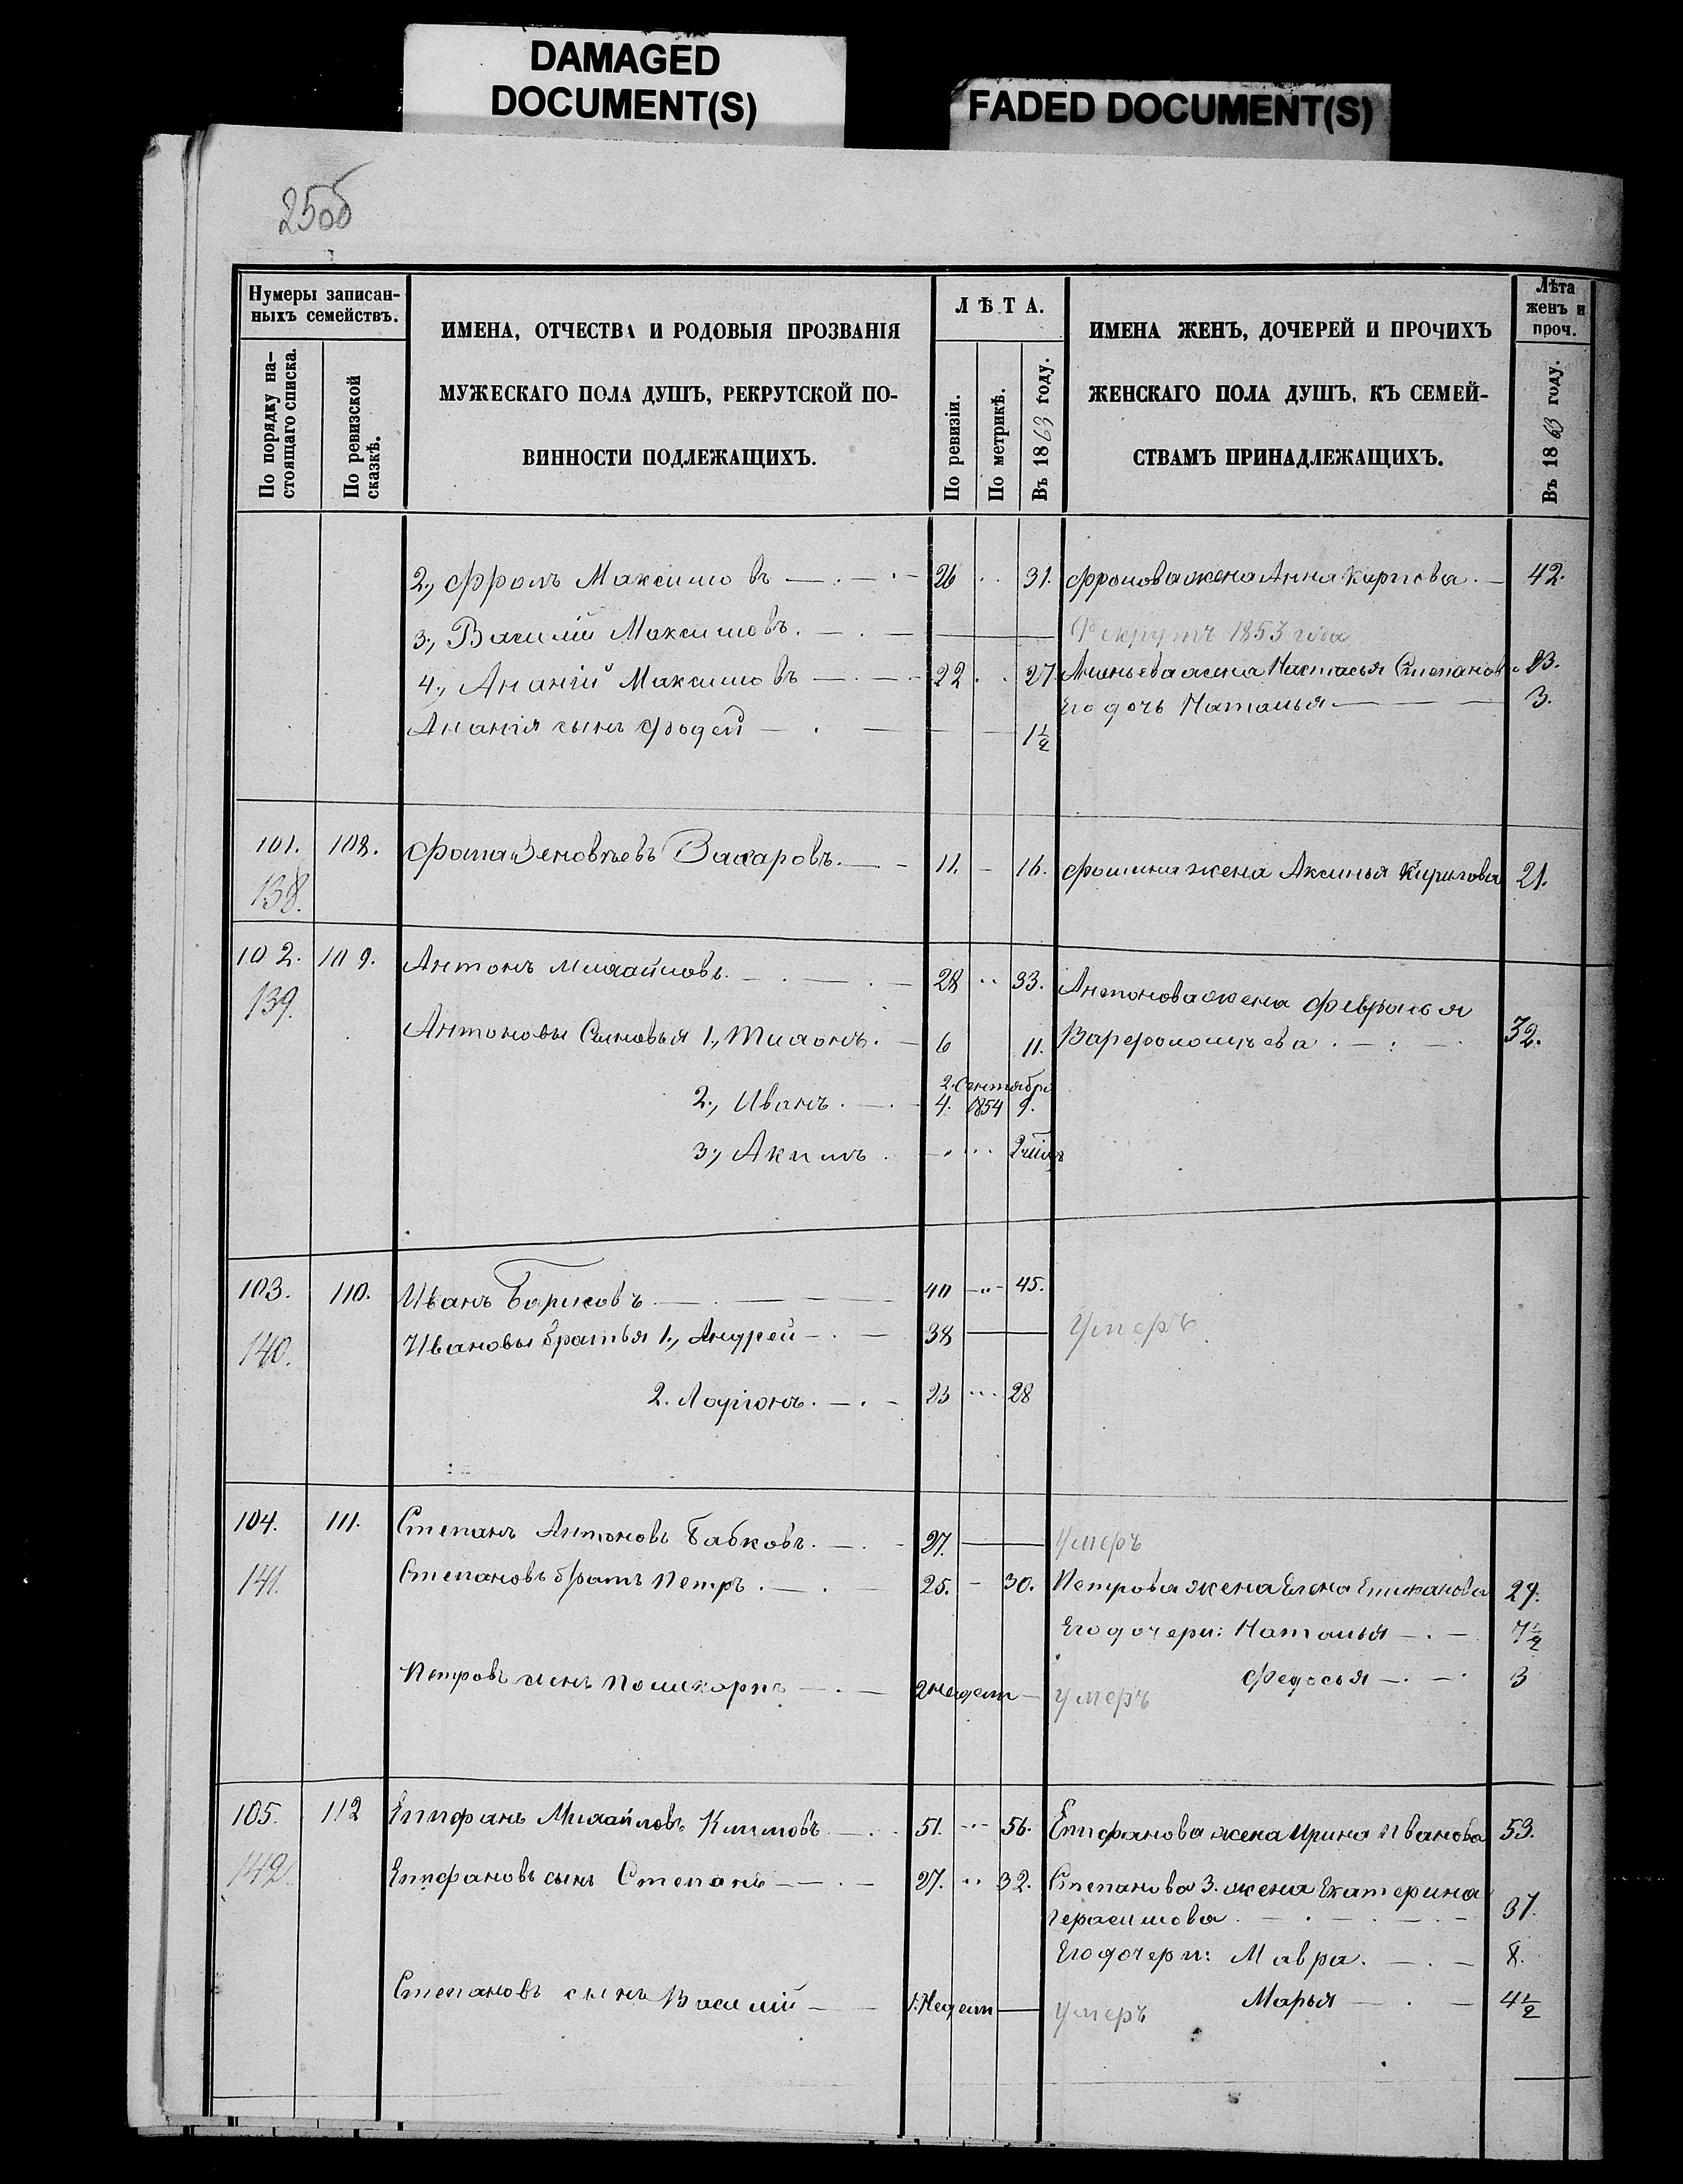 DAMAGED
DOCUMENT(S)
FADED DOCUMENT(S)
25об
Нумеры записан-
ныхъ семействъ.
По порядку на-
стоящаго списка.
По ревизской
сказкѣ.
ИМЕНА, ОТЧЕСТВА И РОДОВЫЯ ПРОЗВАНІЯ
МУЖЕСКАГО ПОЛА ДУШЪ, РЕКРУТСКОЙ ПО-
ВИННОСТИ ПОДЛЕЖАЩИХЪ.
ЛѢТА.
По ревизіи.
По метрикѣ.
Въ 1863 году.
ИМЕНА ЖЕНЪ, ДОЧЕРЕЙ И ПРОЧИХЪ
ЖЕНСКАГО ПОЛА ДУШЪ, КЪ СЕМЕЙ-
СТВАМЪ ПРИНАДЛЕЖАЩИХЪ.
Лѣта
женъ и
проч.
Въ 1863 году.
2., Фролъ Максимовъ 26 31. Фролова жена Анна Карпова 42.
3., Василій Максимовъ. Рекрутъ 1853 года
4., Ананій Максимовъ 22 27 Ананьева жена Настасья Степанов 23.
Его дочь Наталья 3.
Ананія сынъ Фадей 1½
101. 108. Фома Зеновьевъ Захаровъ. 11. 16. Фомина жена Аксинья Кирилова 21.
138.
102. 109. Антонъ Михайловъ. 28 33. Антонова жена Февралья
139.
Антоновы Сыновья 1., Тихонъ. 6 11. Варфоломѣева 32.
2. Сентября
2., Иванъ. 4. 1854 9.
3., Акимъ.
103. 110. Иванъ Борисовъ 40 45.
140. Ивановы братья 1., Андрей 38 Умеръ
2. Ларіонъ. 23 28
104. 111. Степанъ Антоновъ Бабковъ. 27. умеръ
141. Степановъ братъ Петръ. 25. 30. Петрова жена Елена Епифанова 29.
Его дочери: Наталья 7½
Федосья 3
Петровъ сынъ Поликарпъ 2 недели умеръ
105. 112 Епифанъ Михайловъ Климовъ 51. 56. Епифанова жена Ирина Иванова 53.
142. Епифановъ сынъ Степанъ 27. 32. Степанова 3. жена Екатерина
Герасимова 37.
Его дочери: Мавра. 8.
Степановъ сынъ Василій 1. Недели умеръ Марья 4½